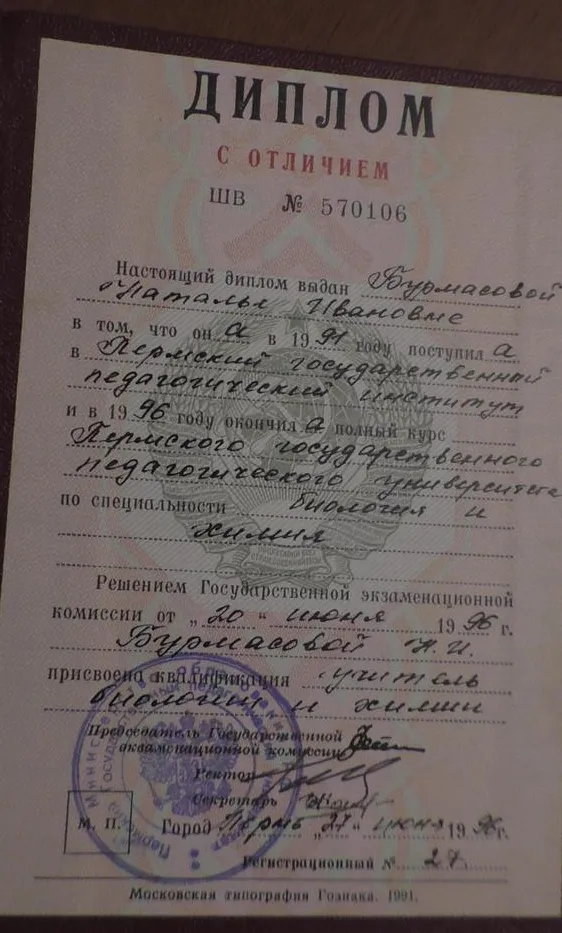 ДИПЛОМ
С ОТЛИЧИЕМ
ШВ № 570106
Настоящий диплом выдан Бурмасовой
Наталье Ивановне
в том, что он а в 1991 году поступил а
в Пермский государственный
педагогический институт
и в 1996 году окончил а полный курс
Пермского государственного
педагогического университета
по специальности биология и
химия
Решением Государственной экзаменационной
комиссии от „20“ июня 1996 г.
Бурмасовой Н.И.
присвоена квалификация учитель
биологии и химии
Председатель Государственной
экзаменационной комиссии
Ректор
Секретарь
М. П. Город Пермь „27“ июня 1996 г.
Регистрационный № 27
Московская типография Гознака. 1991.